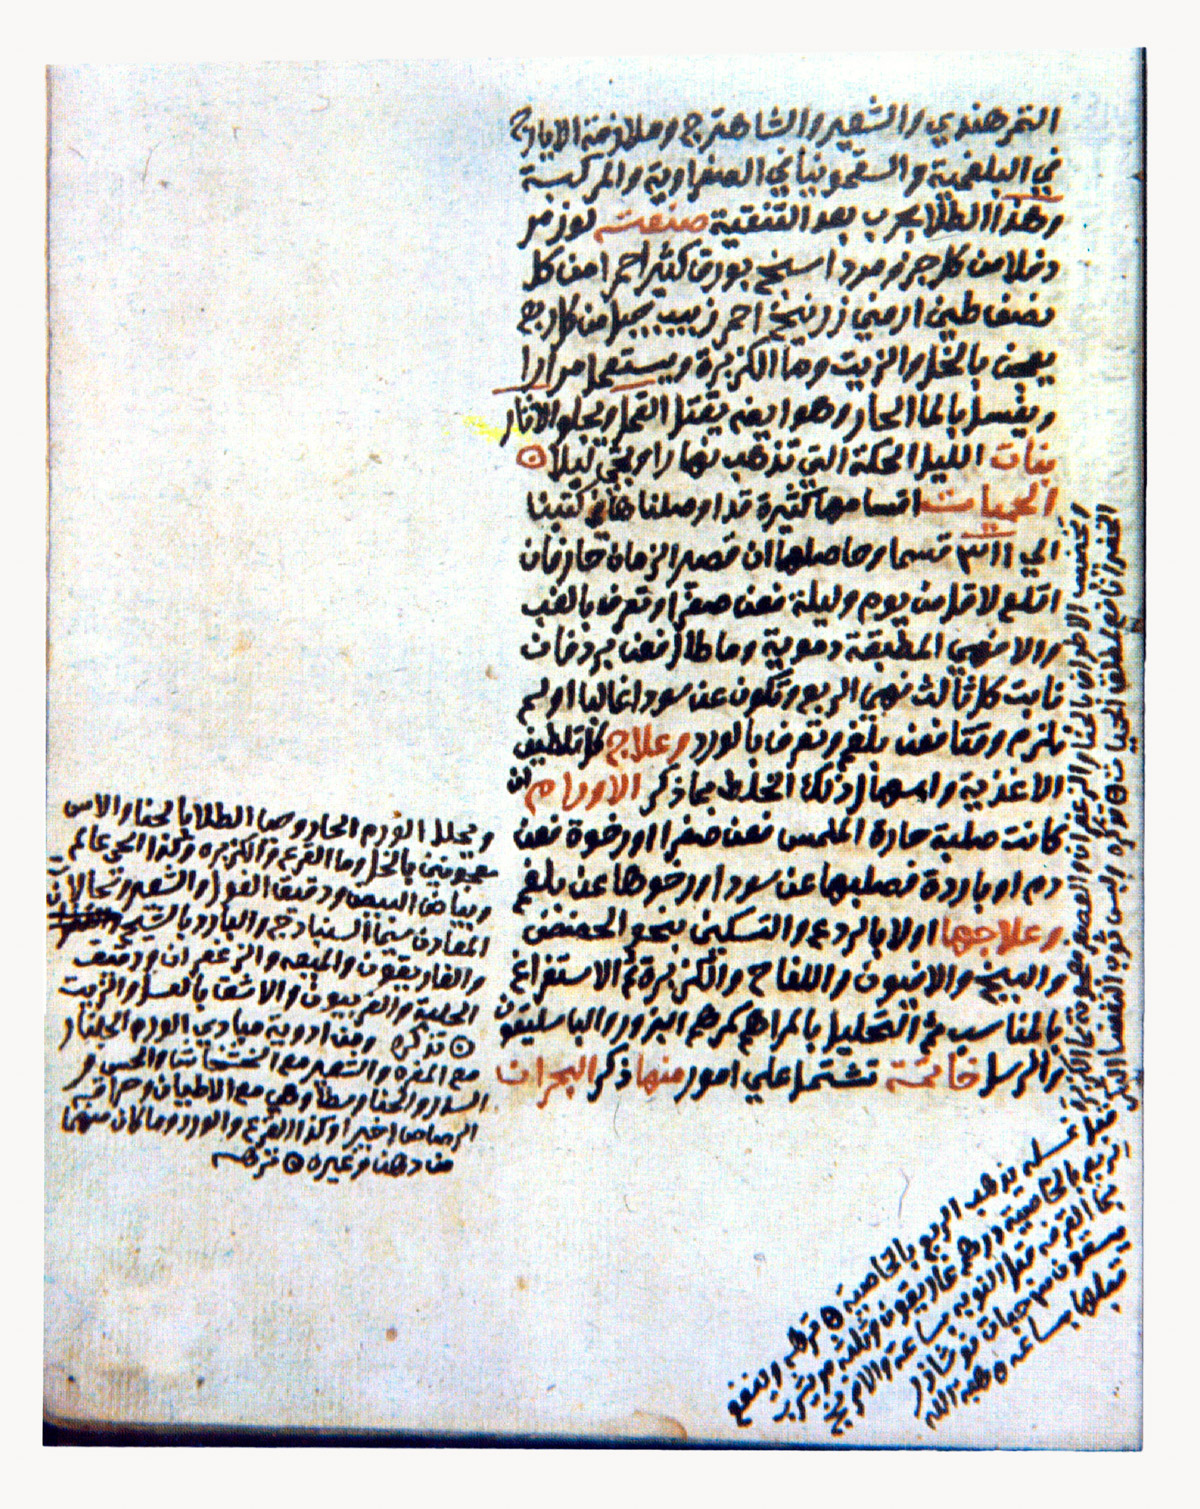 التمرهندي والشعير والشاهترج وملازمة الايارج
في البلغمية والسقمونيا في الصفراوية والمركبة
وهذا الطلا مجرب بعد التنقية صنعته لوز مر
دفلا من كل جزو مرداسنج بورق كثيرا حمر ا من كل
نصف طين ارمني زرنيخ احمر زبيب جبل من كل ربع
يعجن بالخل والزيت وما الكزبرة ويستعمل مرارا
ويغسل بالما الحار وهو ايضه يقتل القمل ويجلو الاثار
بنات الليل الحكة التي تذهب نهارا وتجي ليلا
الحميات اقسامها كثيرة قد اوصلناها في كتبنا
الي قسما وحاصلها ان قصر الزمان حار فان
اقلع لاقل من يوم وليلة فعن صفرا وتعرف بالغب
والا فهي المطبقة دموية وما طال فعن برد فان
نابت كل ثالث فهي الربع وتكون عن سودا غالبا او لم
تلزم وقتا فعن بلغم وتعرف بالورد وعلاج كل تلطيف
الاغذية واسهال ذلك الخلط بما ذكر الاورام ان
كانت صلبة حارة الملمس فعن صفرا او رخوة فعن
دم او باردة فصلبها عن سودا ورخوها عن بلغم
وعلاجها اولا بالردع والتسكين بنحو الحضض
والبنج والافيون واللفاح والكزبرة ثم الاستفراغ
بالمناسب ثم التحليل بالمراهم كمرهم البزور والباسليقون
والرسل خاتمة تشتمل علي امور منها ذكر البحران
ويحلل الورم الحار وضا الطلا بالحنا والاس
معجونين بالخل وما القرع والكزبره وكذا الحي عالم
وبياض البيض ودقيق الفول والشعير ونحالات
المعادن سيما السنبادج والبارد بالشيح
والغاريقون والميعه والزعفران ودقيق
الحلبة والفربيون والاشق بالعسل والزيت
تذكره ومن ادوية مبادي الورم الجلنار
مع المغره والشعير مع الخشخاش والخس و
السدر والحنا وسطا وهي مع الاطيان وحراقه
الرصاص اخيرا وكذا القرع والورد وما كان منهما
من دهن وغيره نزهه
وتخضيب الاطراف بالحنا والزعفران والعصفر معجونة بما الكزبرة
الخضرا نافع لمطلق الحميات تذكره ولبس ثوب النفسا البكر
قبل غسله يذهب الربع بالخاصية نزهه وينفع
الربع بالخاصية درهم غاريقون وثلثه
بما القرفه قبل النوبه بساعة والا
يسقون حبات نوشادر
قبلها بساعه هبة الله